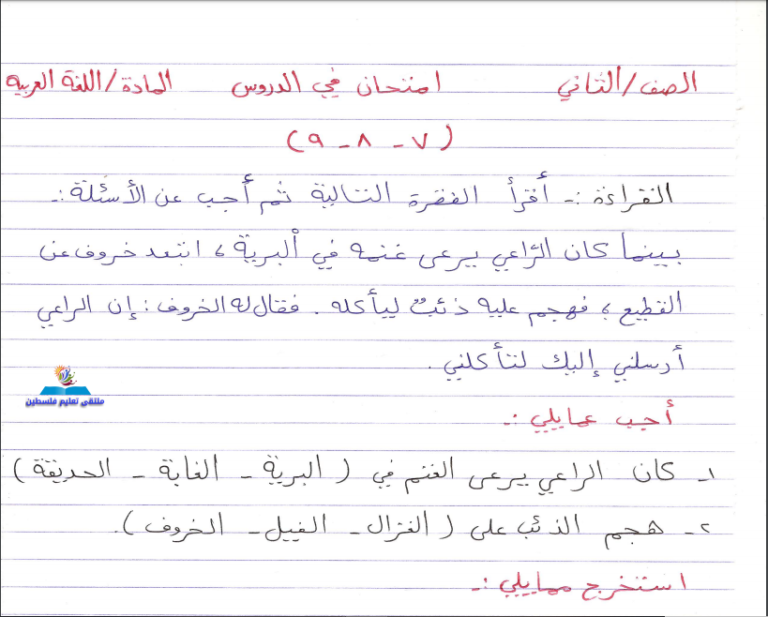 الصف/الثاني امتحان في الدروس المادة/اللغة العربية
(٧ - ٨ - ٩)
القراءة :- أقرأ الفقرة التالية ثم أجب عن الأسئلة :-
بينما كان الرّاعي يرعى غنمه في البرية ، ابتعد خروف عن
القطيع ، فهجم عليه ذئبٌ ليأكله . فقال له الخروف : إن الراعي
أرسلني إليك لتأكلني .
ملتقى تعليم فلسطين
أجب عمايلي :-
١- كان الراعي يرعى الغنم في ( البرية - الغابة - الحديقة )
٢- هجم الذئب على ( الغزال - الفيل - الخروف ).
استخرج ممايلي :-